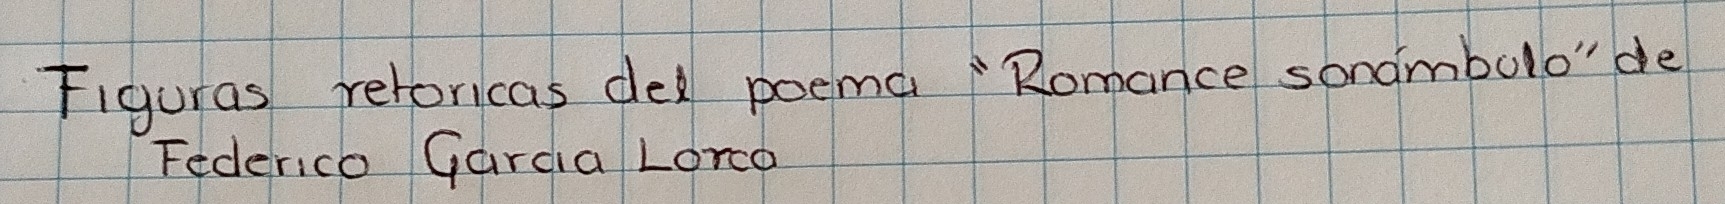 Figuras retoricas del poema "Romance sonámbulo" de
Federico Garcia Lorca